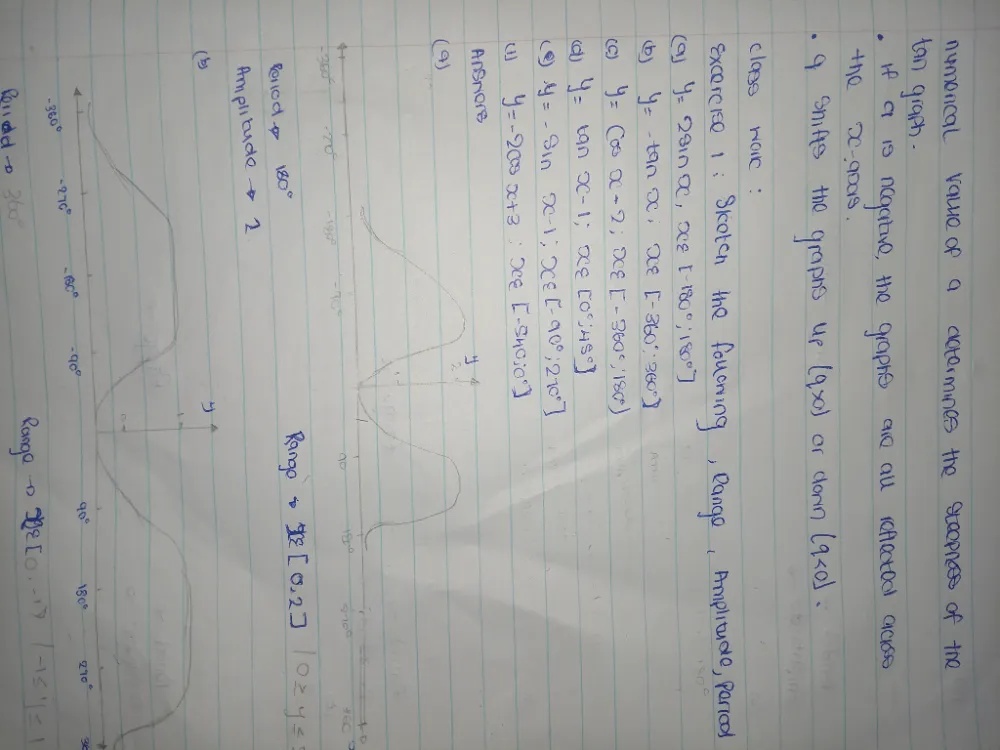 numerical value of a determines the steepness of the
tan graph.
• If a is negative, the graphs are all reflected across
the x-axis.
• q shifts the graphs up (q>0) or down (q<0).
class work :
Exercise 1 : Sketch the following, Range, Amplitude, Period
(a) y = 2sin x, xε [-180°; 180°]
(b) y = -tan x; xε [-360°; 360°]
(c) y = cos x + 2; xε [-360°; 180°)
(d) y = tan x - 1; xε [0°; 45°]
(e) y = -sin x - 1; xε [-90°; 270°]
(f) y = -2cos x + 3; xε [-540; 0°]
Answers
(a)
y
2
1
-180° -90° 90 180°
Period → 180°
Range → yε [0, 2]
Amplitude → 2
(b
y
1
0
-360° -270° -180° -90° 90° 180° 270°
Period → 360°
Range → yε [0, -1) / -1≤y≤1